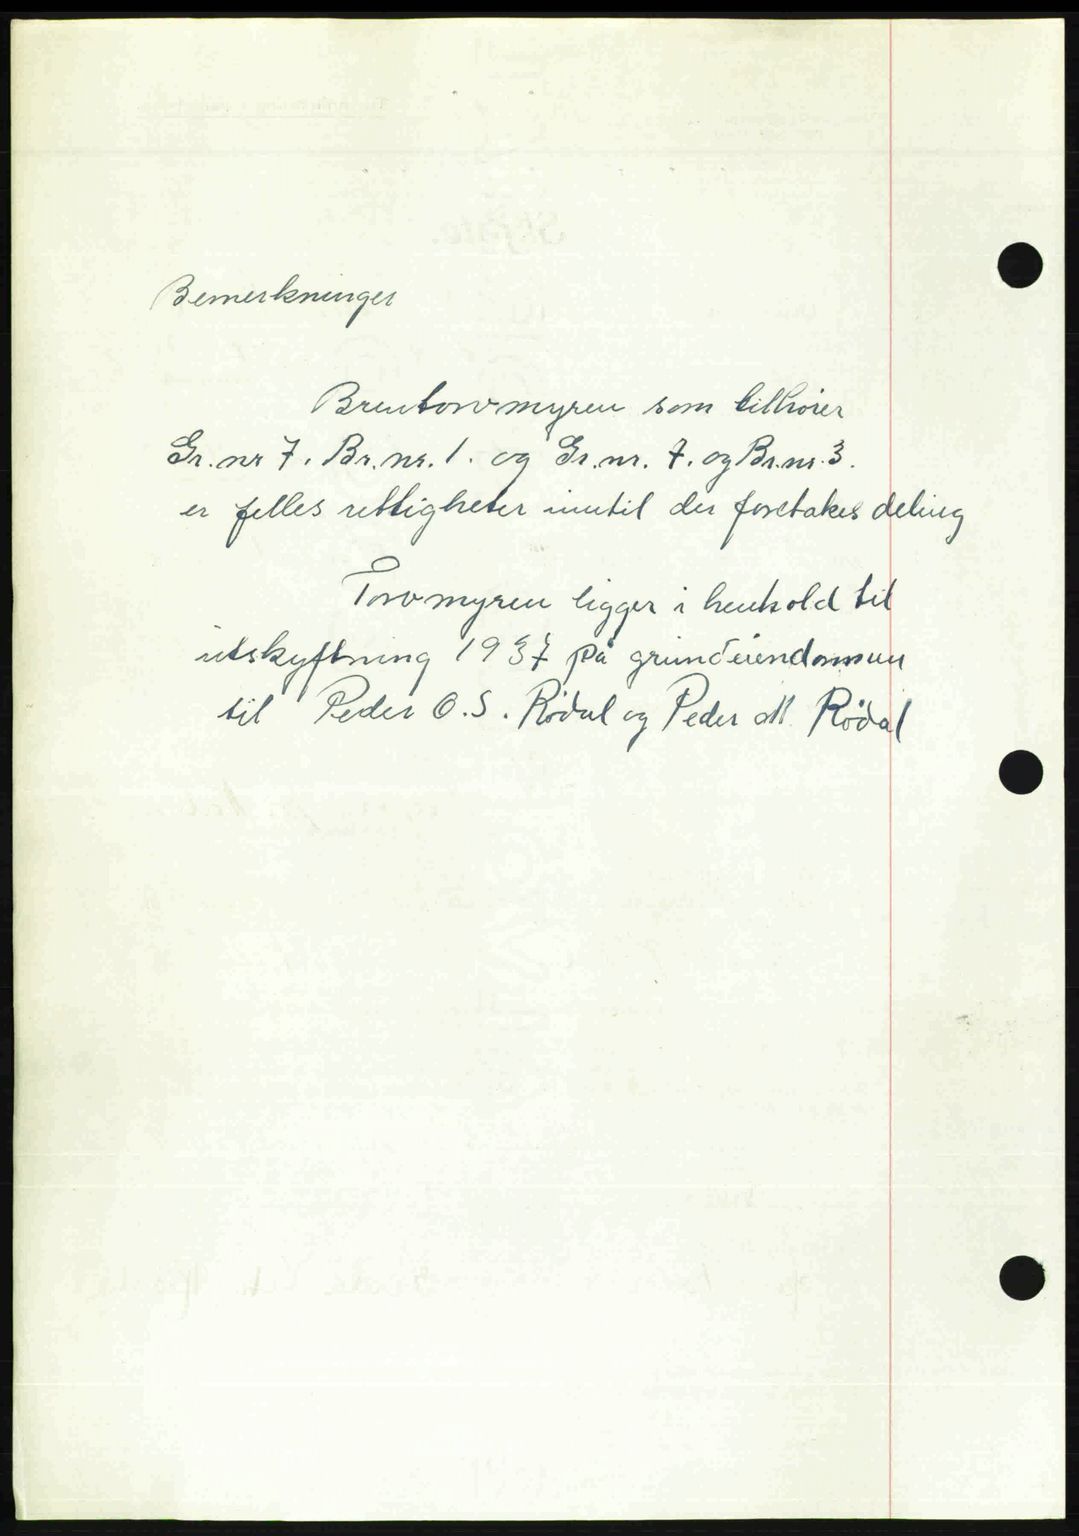 Bemerkninger
Brentorvmyren som tilhører
Gr. nr 7. Br. nr. 1. og Gr. nr. 7. og Br. nr. 3.
er felles rettigheter inntil der foretakes deling
Torvmyren ligger i henhold til
utskyftning 1937 på grundeiendommen
til Peder O. S. Rødal og Peder M. Rødal